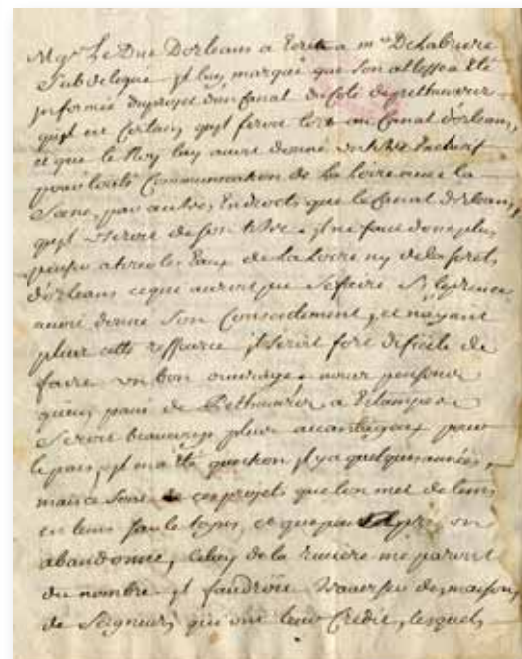 Mgr Le Duc Dorleans a Ecrit a mr DeLabriere
Subdelegué jl luy marque que son altesse a Eté
jnformée duprojet d'un Canal du coté de pethuviers
quil est Certain quil feroit tort au Canal d'orleans,
et que le Roy luy avoit donné un titre Exclusif
pour toute Communication de La Loire avec la
Seine, par autres Endroits que le Canal d'orleans,
quil useroit de son titre. jl ne faut donc plus
penser a tirer les Eaux de La Loire ny de la forest
d'orleans ce que auroit pu se faire Si le prince
avoit donné Son Consentement, et n'ayant
plus cette ressource jl seroit fort dificile de
faire un bon ouvrage. nous pensons
qu'un pavé de Pethuviers a Estampes
Seroit beaucoup plus avantageux pour
le pais, jl en a été question jl y a quelques années,
mais ce sont de ces projets que l'on met de tems
en tems sur le tapis, et que puis apres on
abandonne, Celuy de la riviere me paroit
du nombre jl faudroit traverser des maisons
de Seigneurs qui ont leur Credit, lesquels